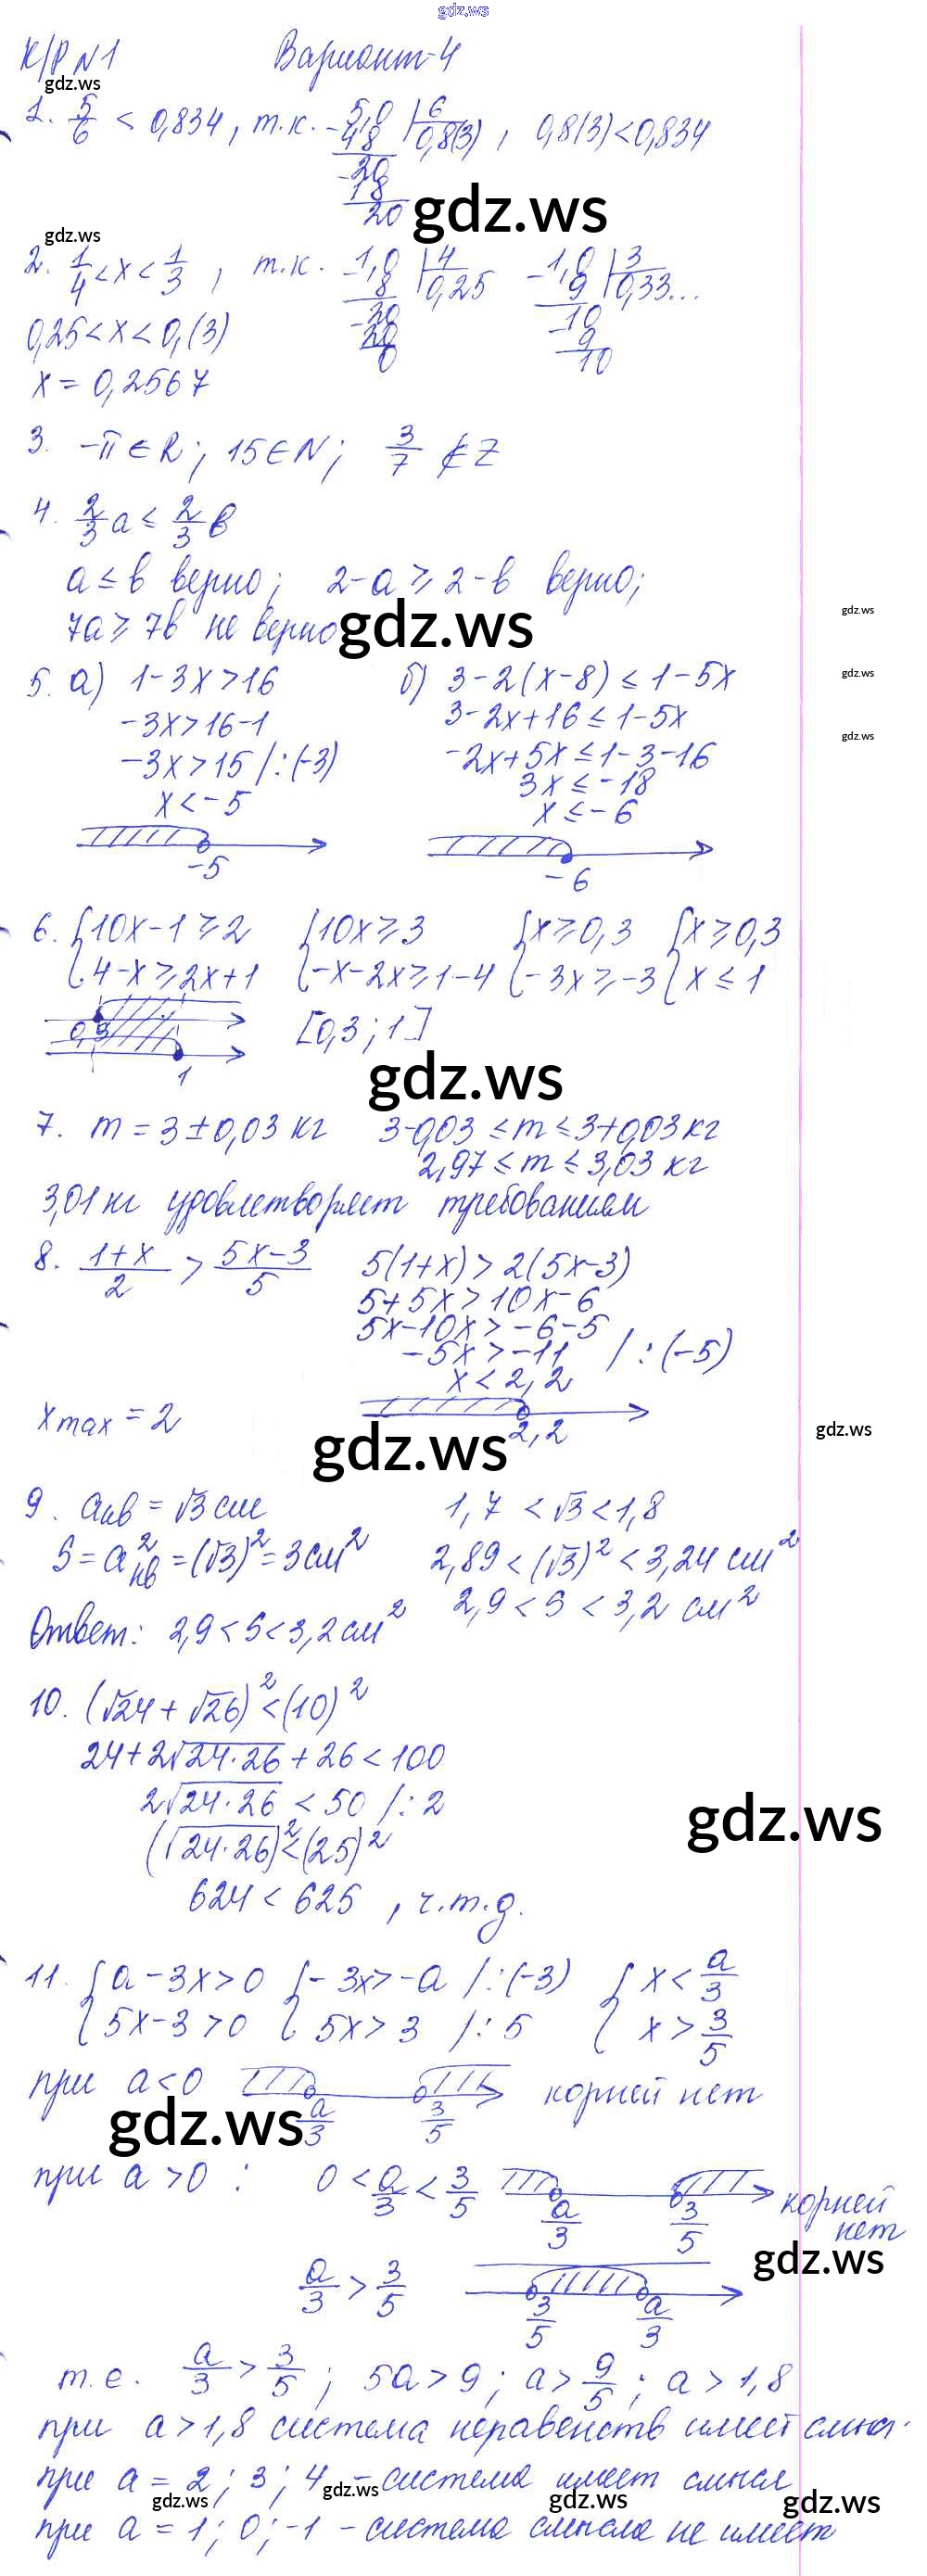 gdz.ws
К/Р N1 Вариант-4
gdz.ws
1. 5/6 < 0,834, т.к. 5,0 | 6 0,8(3), 0,8(3)<0,834
-48
20
-18
20
gdz.ws
gdz.ws
2. 1/4 < x < 1/3, т.к. -1,0 | 4 0,25 -1,0 | 3 0,33...
8 9
-20 -10
20 9
0 10
0,25 < x < 0,(3)
x = 0,2567
3. -π ∈ R; 15 ∈ N; 3/7 ∉ Z
4. 2/3 a ≤ 2/3 в
a ≤ в верно; 2-a ≥ 2-в верно;
7a ≥ 7в не верно
gdz.ws
gdz.ws
gdz.ws
gdz.ws
5. а) 1-3x>16 б) 3-2(x-8) ≤ 1-5x
-3x>16-1 3-2x+16 ≤ 1-5x
-3x>15 /:(-3) -2x+5x ≤ 1-3-16
3x ≤ -18
x < -5 x ≤ -6
-5 -6
6. { 10x-1 ≥ 2 { 10x ≥ 3 { x ≥ 0,3 { x ≥ 0,3
{ 4-x ≥ 2x+1 { -x-2x ≥ 1-4 { -3x ≥ -3 { x ≤ 1
0,3 1 [0,3; 1]
gdz.ws
7. m = 3 ± 0,03 кг 3-0,03 ≤ m ≤ 3+0,03 кг
2,97 ≤ m ≤ 3,03 кг
3,01 кг удовлетворяет требованиям
8. (1+x)/2 > (5x-3)/5 5(1+x) > 2(5x-3)
5+5x > 10x-6
5x-10x > -6-5
-5x > -11 /:(-5)
x < 2,2
x max = 2 2,2
gdz.ws
gdz.ws
9. a кв = √3 см 1,7 < √3 < 1,8
S = a²кв = (√3)² = 3 см² 2,89 < (√3)² < 3,24 см²
2,9 < S < 3,2 см²
Ответ: 2,9 < S < 3,2 см²
10. (√24 + √26)² < (10)²
24+2√24·26 + 26 < 100
2√24·26 < 50 /:2
(√24·26)² < (25)²
gdz.ws
624 < 625, ч.т.д.
11. { a-3x>0 { -3x>-a /:(-3) { x < a/3
{ 5x-3>0 { 5x>3 /:5 { x > 3/5
при a<0 a/3 3/5 корней нет
gdz.ws
при a>0: 0 < a/3 < 3/5 a/3 3/5 корней нет
gdz.ws
a/3 > 3/5 3/5 a/3
т.е. a/3 > 3/5; 5a > 9; a > 9/5; a > 1,8
при a > 1,8 система неравенств имеет смысл.
при a = 2; 3; 4 - система имеет смысл
gdz.ws gdz.ws gdz.ws gdz.ws
при a = 1; 0; -1 - система смысла не имеет